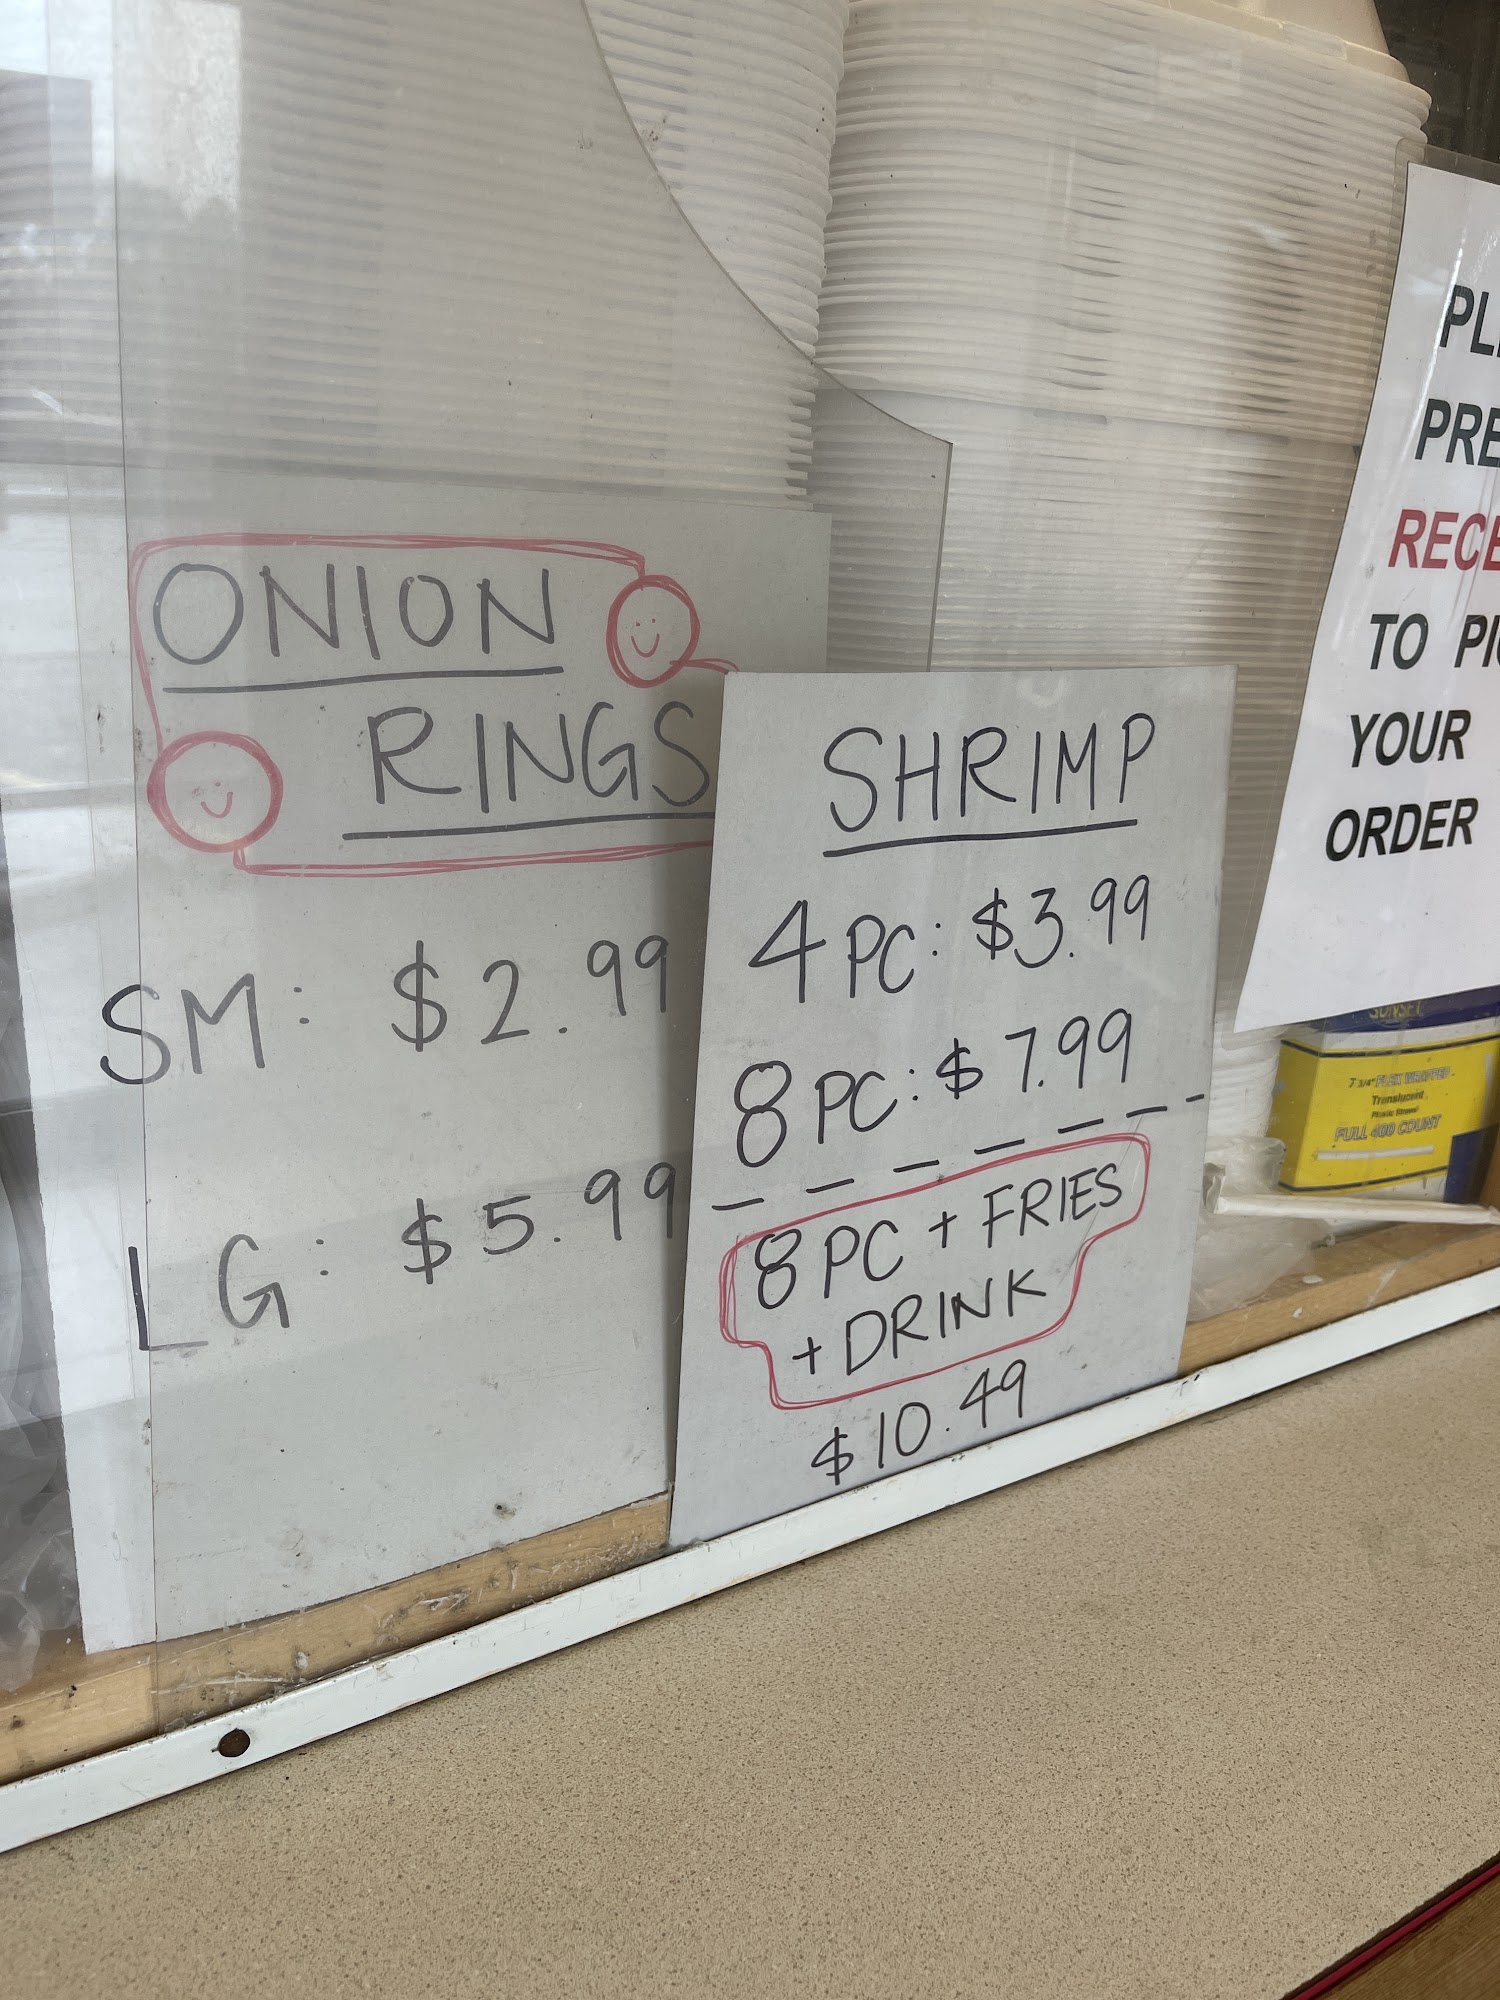 ONION
RINGS
SM: $2.99
LG: $5.99
SHRIMP
4 PC: $3.99
8 PC: $7.99
8 PC + FRIES
+ DRINK
$10.49
TO
YOUR
ORDER
SUNSET
7 3/4" FLEX WRAPPED
Translucent
FULL 400 COUNT